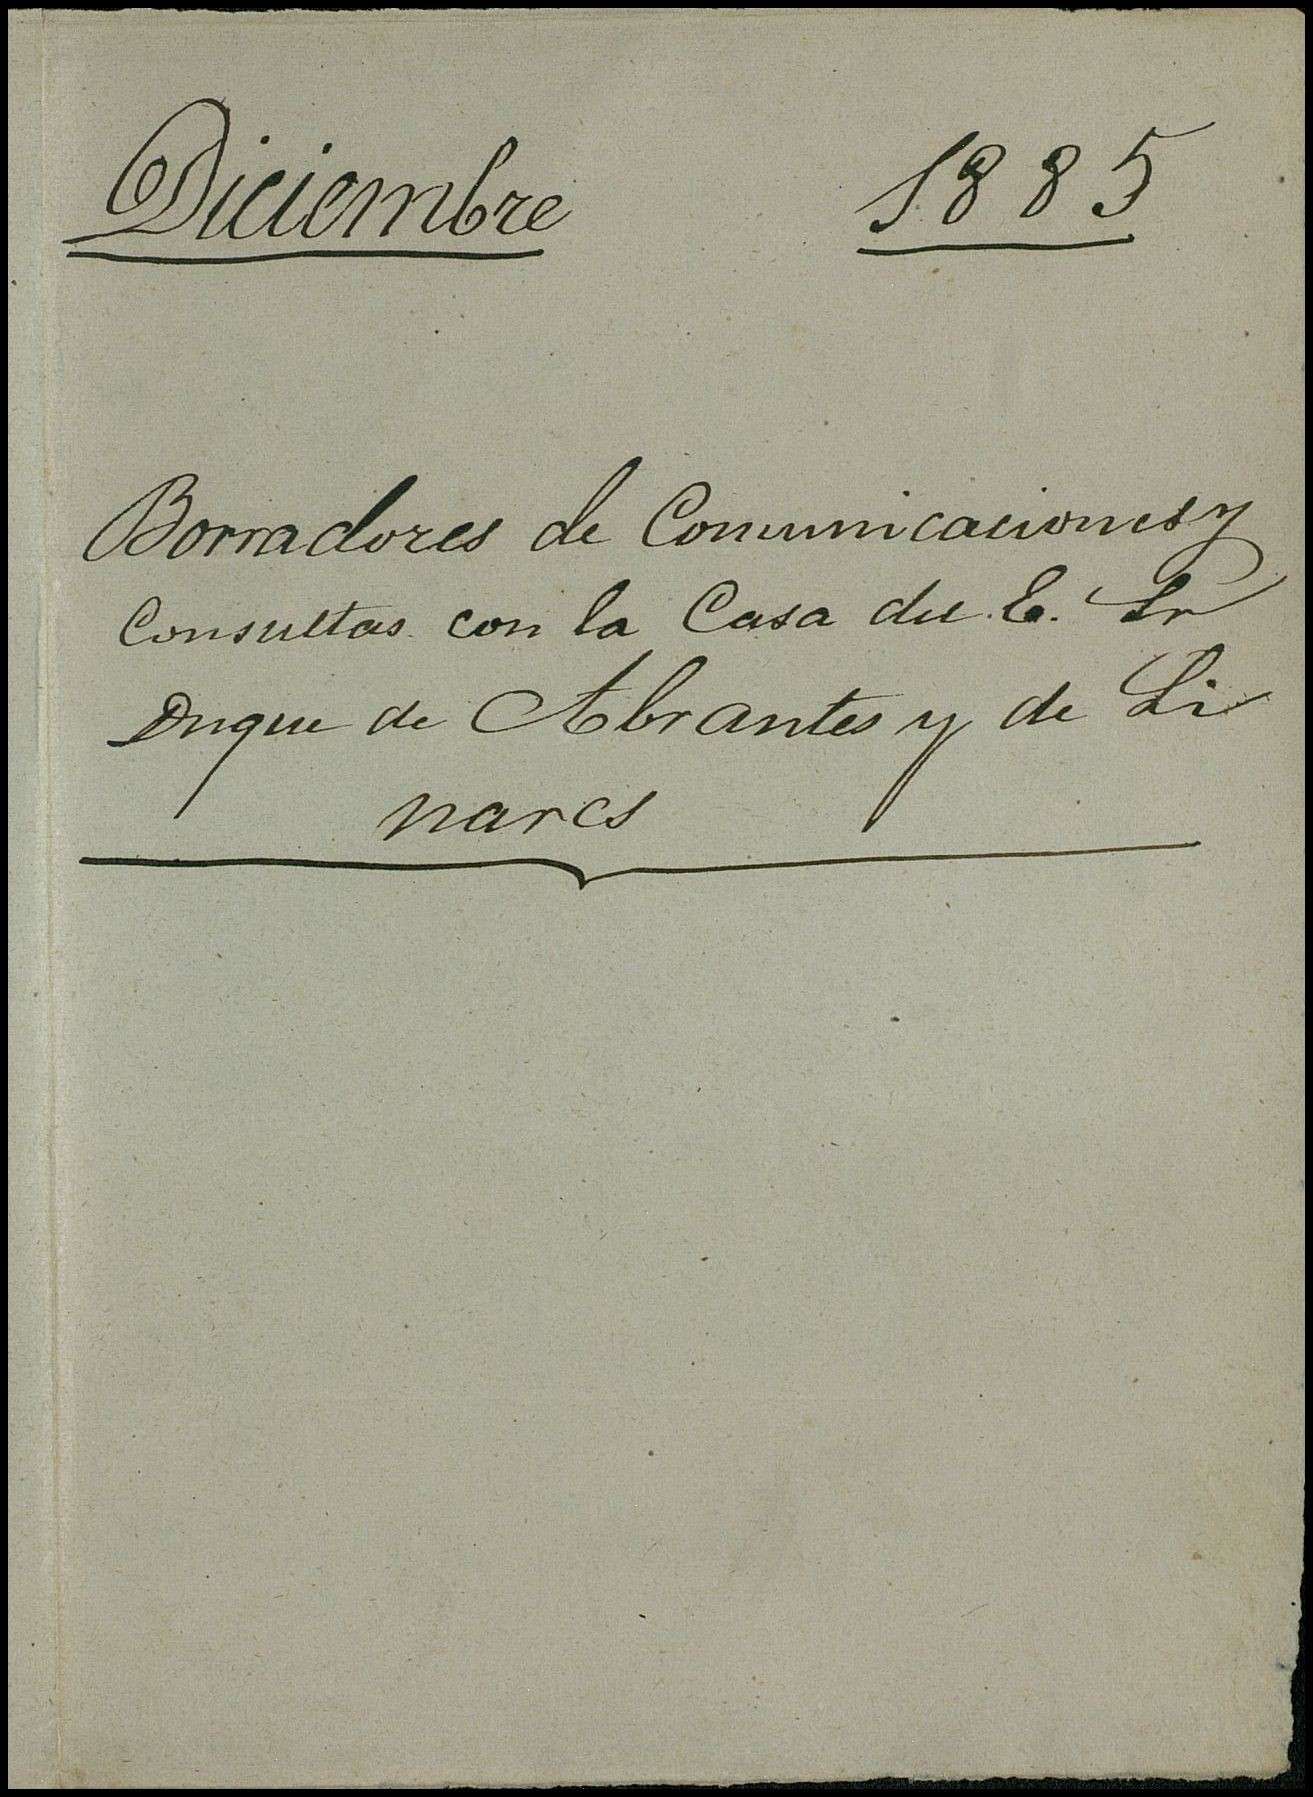 Diciembre 1885
Borradores de Comunicaciones y
Consultas con la Casa del E. Sr
Duque de Abrantes y de Li
nares